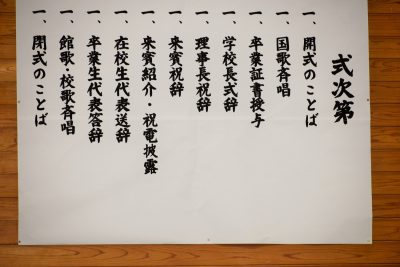 式次第
一、開式のことば
一、国歌斉唱
一、卒業証書授与
一、学校長式辞
一、理事長祝辞
一、来賓祝辞
一、来賓紹介・祝電披露
一、在校生代表送辞
一、卒業生代表答辞
一、館歌・校歌斉唱
一、閉式のことば